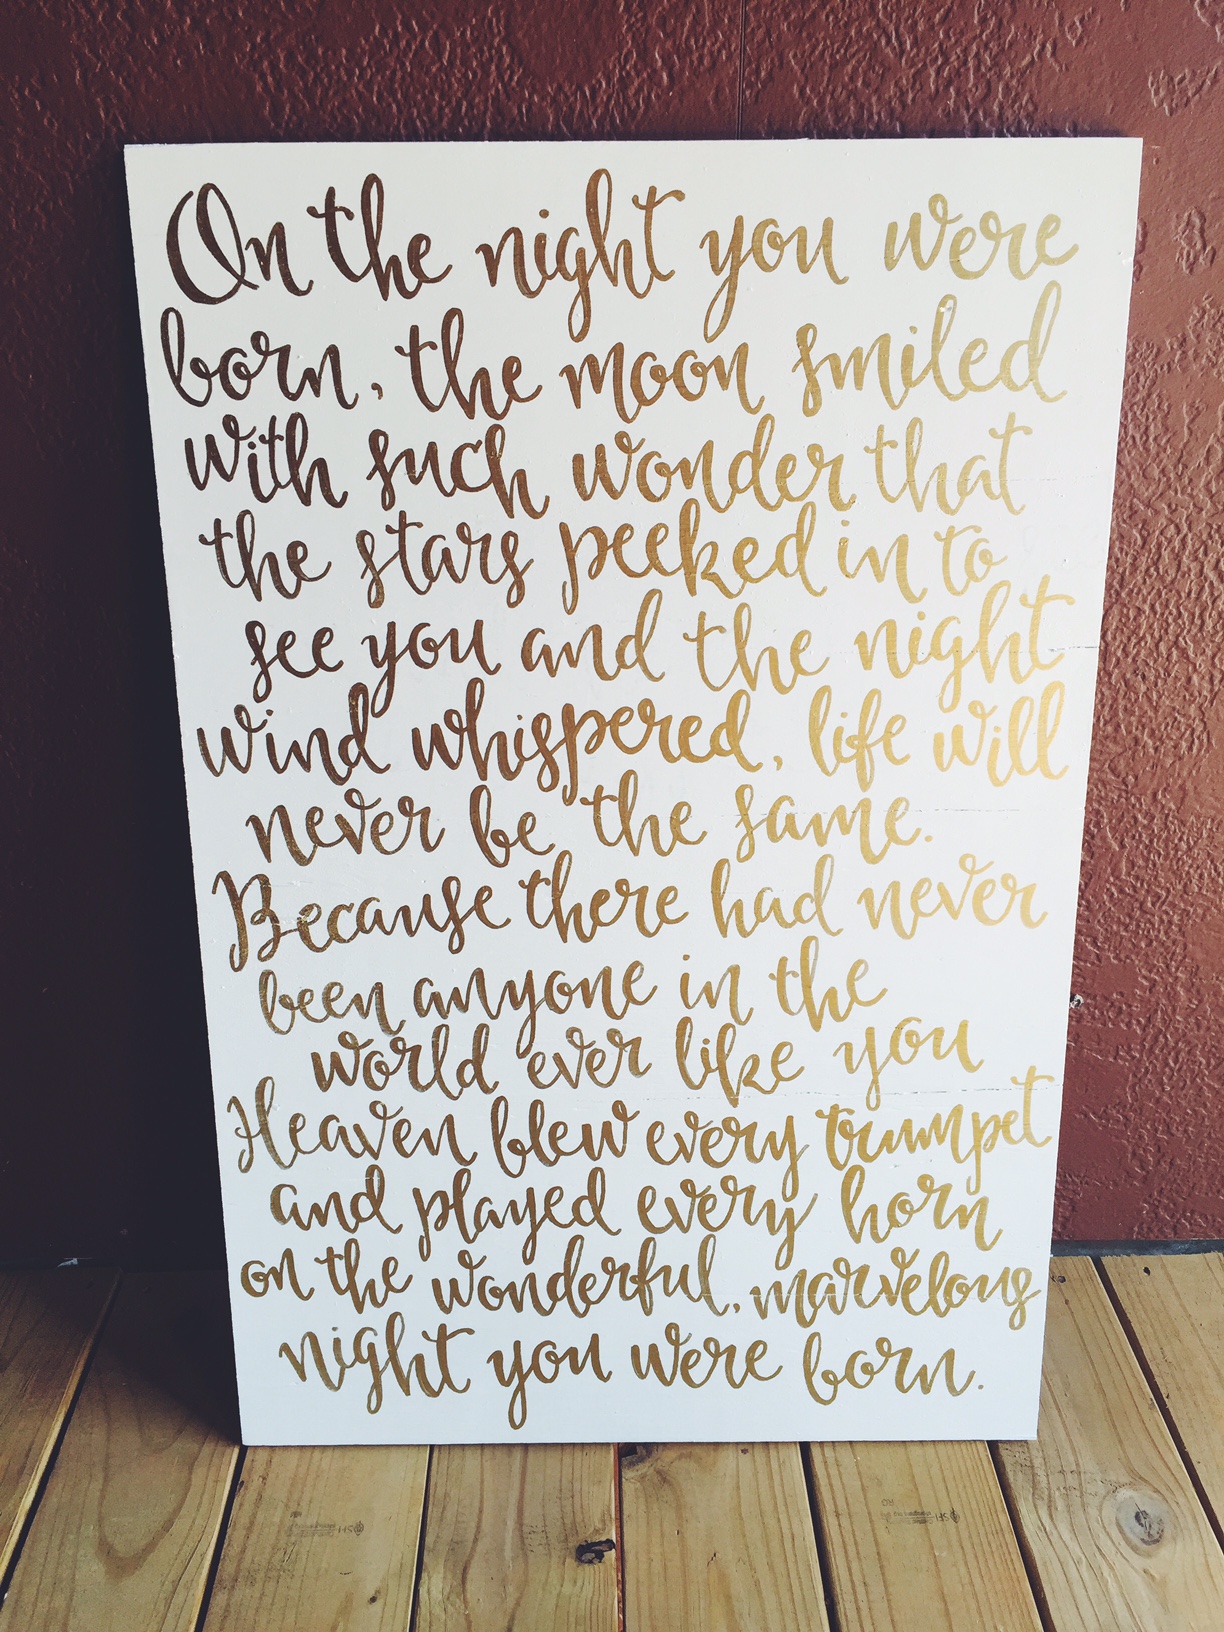 On the night you were
born, the moon smiled
with such wonder that
the stars peeked in to
see you and the night
wind whispered, life will
never be the same.
Because there had never
been anyone in the
world ever like you
Heaven blew every trumpet
and played every horn
on the wonderful, marvelous
night you were born.